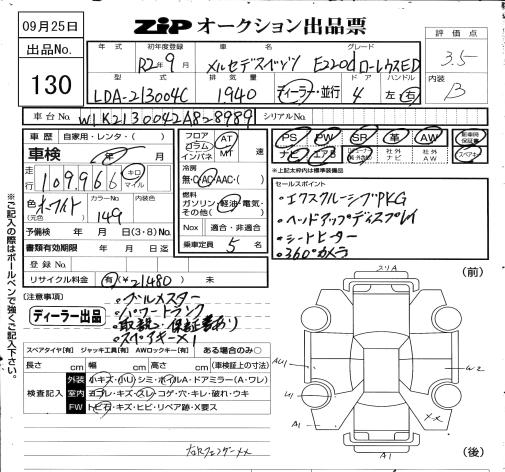 09月25日
ZIP オークション出品票
出品No.
130
年式 初年度登録 車名 グレード
R2年9月 メルセデスベンツ E220d ローレウスED
型式 排気量 ドア ハンドル
LDA-213004C 1940 ディーラー・並行 4 左 右
評価点
3.5
内装
B
車台No. W1K2130042A828989 シリアルNo.
車歴 自家用・レンタ・( )
車検 年 月
走行 109,966 キロ マイル
色 (元色) カラーNo. 149 内装色
予備検 年 月 日(3・8)No.
書類有効期限 年 月 日迄
登録No.
リサイクル料金 有(¥21480) 未
フロア コラム インパネ AT MT 速
冷房 無・C・AAC( )
燃料 ガソリン・軽油・電気・その他( )
Nox 適合・非適合
乗車定員 5 名
PS PW SR 革 AW 新車時保証書
ナビ エアB 社外ナビ 社外AW スペアキー
*上記太枠内は標準装備品
セールスポイント
・エクスクルーシブPKG
・ヘッドアップディスプレイ
・シートヒーター
・360°カメラ
(注意事項)
・グルメスター
・パワートランク
・取説・保証書あり
・スペアキー×1
ディーラー出品
スペアタイヤ[有] ジャッキ工具[有] AWロックキー[有] ある場合のみ○
長さ cm 幅 cm 高さ cm (車検証上の寸法)
検査記入
外装 小キズ・小凹・シミ・ホイルA・ドアミラー(A・ワレ)
室内 ヨゴレ・キズ・スレ・コゲ・穴・キレ・破れ・ウキ
FW トビ石・キズ・ヒビ・リペア跡・X要ス
※ご記入の際はボールペンで強くご記入下さい。
(前)
(後)
AU1
U1
A1
A1
W2
××